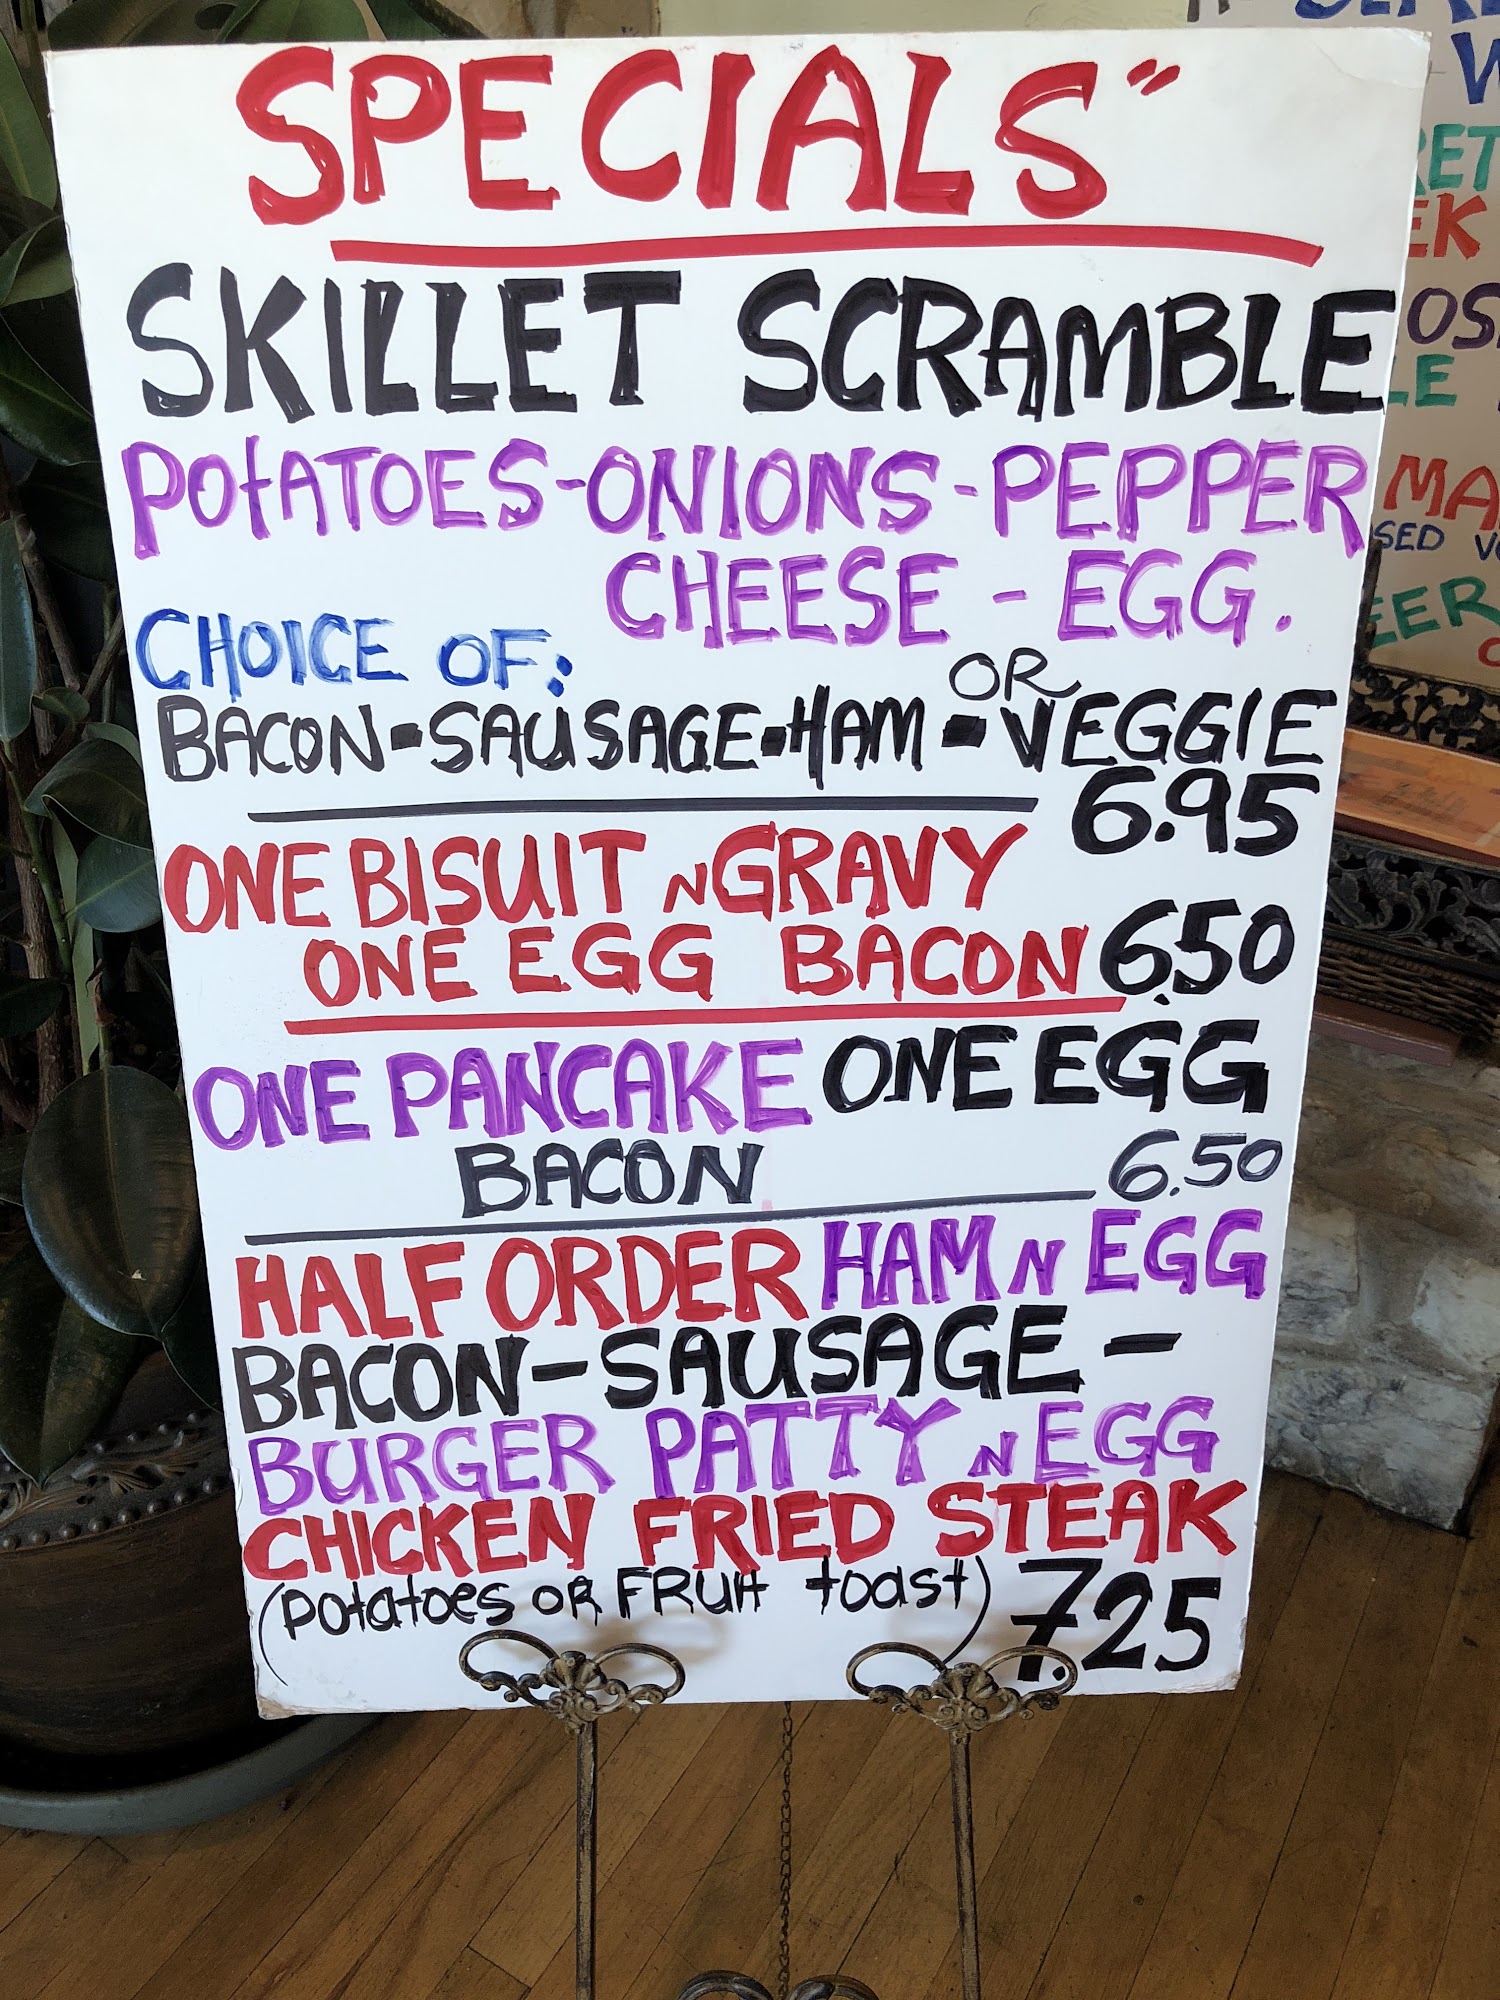 SPECIALS"
SKILLET SCRAMBLE
POTATOES-ONIONS-PEPPER
CHEESE - EGG.
CHOICE OF:
OR
BACON-SAUSAGE-HAM-VEGGIE
6.95
ONE BISUIT N GRAVY
ONE EGG BACON 6.50
ONE PANCAKE ONE EGG
BACON 6.50
HALF ORDER HAM N EGG
BACON-SAUSAGE-
BURGER PATTY N EGG
CHICKEN FRIED STEAK
(POTATOES OR FRUIT TOAST) 7.25